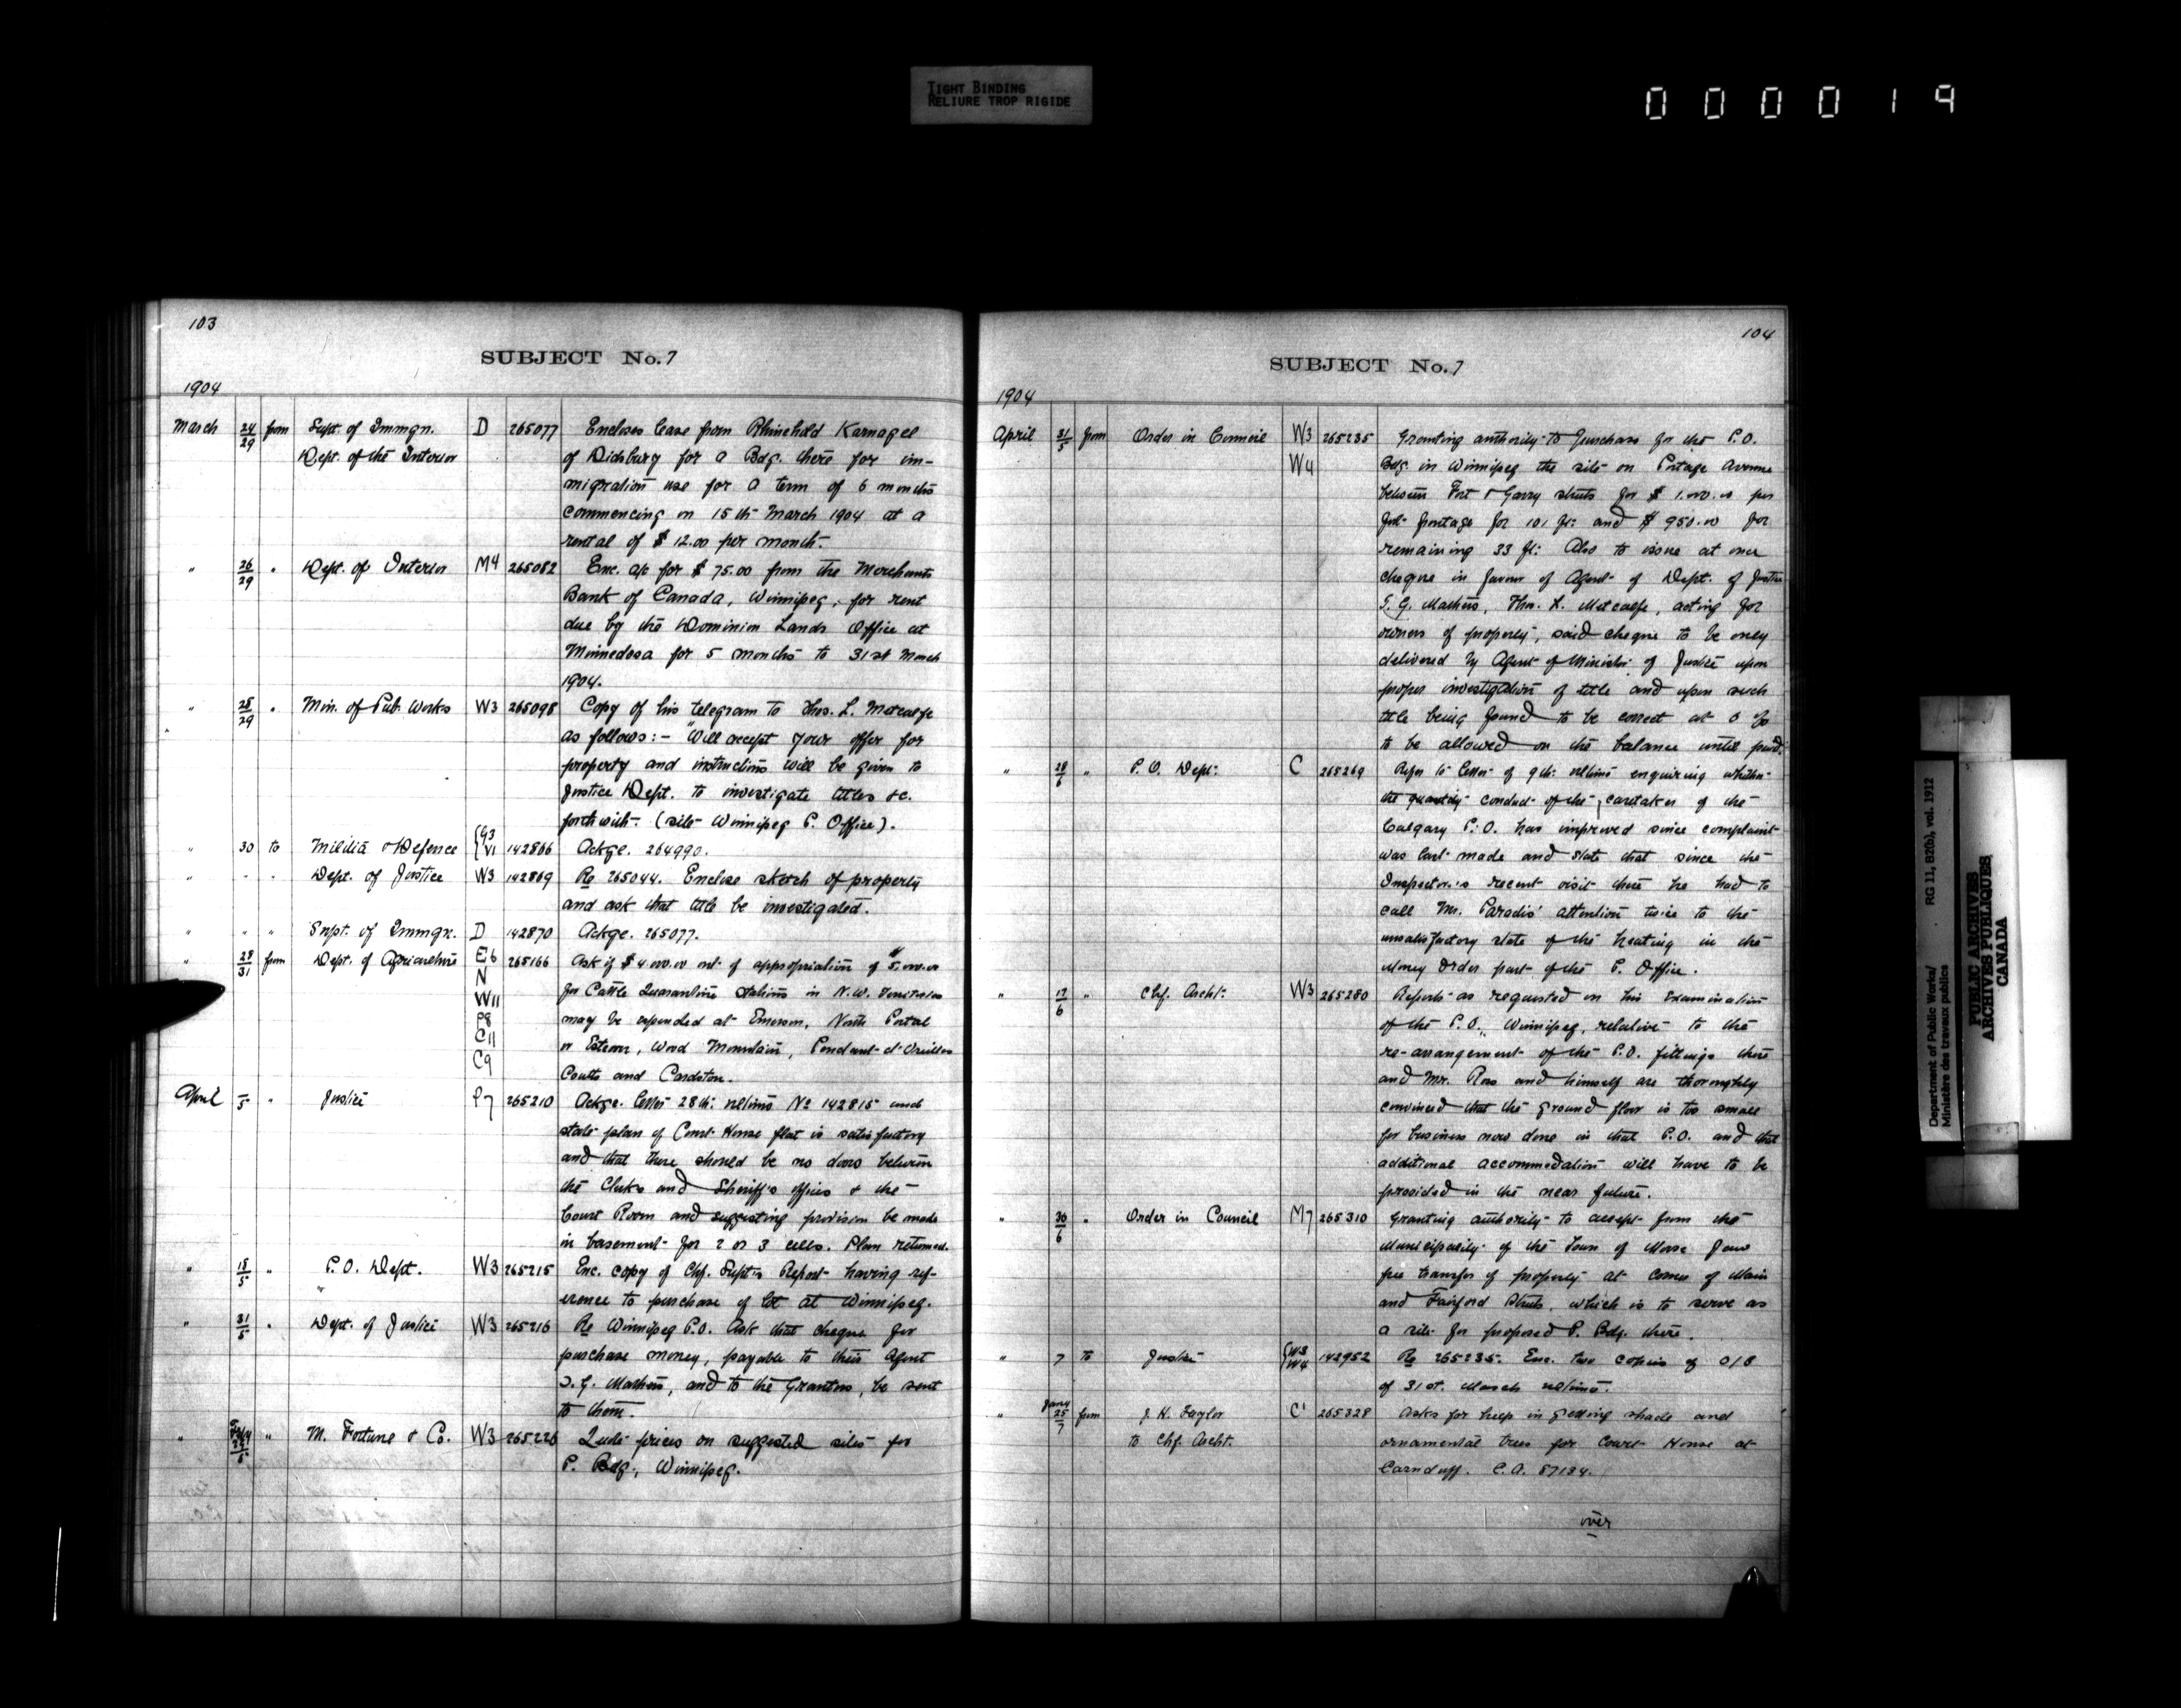 TIGHT BINDING
RELIURE TROP RIGIDE
000019
103
SUBJECT No. 7
1904
March 24/29 from Supt. of Immgn. D 265077 Encloses lease from Rhinehold Karnagel
Dept. of the Interior of Didsbury for a Bdg. there for im-
migration use for a term of 6 months
commencing on 15th March 1904 at a
rental of $12.00 per month.
" 26/29 " Dept. of Interior M4 265082 Enc. a/c for $75.00 from the Merchants
Bank of Canada, Winnipeg, for rent
due by the Dominion Lands Office at
Minnedosa for 5 months to 31st March
1904.
" 28/29 " Min. of Pub. Works W3 265098 Copy of his telegram to Thos. L. Metcalfe
as follows:- "Will accept your offer for
property and instructions will be given to
Justice Dept. to investigate titles &c.
forthwith. (site Winnipeg P. Office).
" 30 to Militia & Defence {G3 V1 142866 Ackge. 264990.
" " " Dept. of Justice W3 142869 Re 265044. Enclose sketch of property
and ask that title be investigated.
" " " Supt. of Immgn. D 142870 Ackge. 265077.
" 28/31 from Dept. of Agriculture E6 265166 Ask if $4.000.00 out of appropriation of $5.000.00
N
W11 for Cattle Quarantine stations in N.W. Territories
P8 may be expended at Emerson, North Portal
C11 or Estevan, Wood Mountain, Pendant-d'Oreilles
C9 Coutts and Cardston.
April /5 " Justice P7 265210 Ackge. letter 28th: ultimo No 142815 and
state plan of Court House flat is satisfactory
and that there should be no doors between
the Clerks and Sheriff's offices & the
Court Room and suggesting provision be made
in basement for 2 or 3 cells. Plan returned.
" 15/5 " P.O. Dept. W3 265215 Enc. copy of Chf. Supt's Report having ref-
erence to purchase of lot at Winnipeg.
" 31/5 " Dept. of Justice W3 265216 Re Winnipeg P.O. Ask that cheque for
purchase money, payable to their Agent
G. Mathers, and to the Grantors, be sent
to them.
" " M. Fortune & Co. W3 265226 Quote prices on suggested sites for
P. Bdg., Winnipeg.
104
SUBJECT No. 7
1904
April 31/5 from Order in Council W3 265235 Granting authority to purchase for the P.O.
W4 Bdg. in Winnipeg the site on Portage Avenue
between Fort & Garry streets for $1.000.00 per
foot frontage for 101 ft: and $950.00 for
remaining 33 ft: Also to issue at once
cheque in favour of Agent of Dept. of Justice
G. Mathers, Thos. L. Metcalfe, acting for
owners of property, said cheque to be only
delivered by Agent of Minister of Justice upon
proper investigation of title and upon such
title being found to be correct at 5 %
to be allowed on the balance until paid.
" 28/6 " P.O. Dept: C 265269 Refer to letter of 9th: ultimo enquiring whether
the quantity conduct of the caretaker of the
Calgary P.O. has improved since complaint
was last made and state that since the
Inspector's recent visit there he had to
call Mr. Paradis' attention twice to the
unsatisfactory state of the heating in the
Money Order part of the P. Office.
" 17/6 " Chf. Archt: W3 265280 Reports as requested on his examination
of the P.O., Winnipeg, relative to the
re-arrangement of the P.O. fittings there
and Mr. Ross and himself are thoroughly
convinced that the ground floor is too small
for business now done in that P.O. and that
additional accommodation will have to be
provided in the near future.
" 30/6 " Order in Council M7 265310 Granting authority to accept from the
Municipality of the Town of Moose Jaw
free transfer of property at corner of Main
and Fairford Streets, which is to serve as
a site for proposed P. Bdg. there.
" 7 to Justice {W3 W4 142952 Re 265235. Enc. two copies of O/C
of 31st. March ultimo.
" Jany 25/7 from J. H. Taylor C1 265328 Asks for help in getting shade and
to Chf. Archt. ornamental trees for Court House at
Carnduff. C.A. 57134.
over
Department of Public Works/ RG 11, B2(b), vol. 1912
Ministère des travaux publics
PUBLIC ARCHIVES
ARCHIVES PUBLIQUES
CANADA